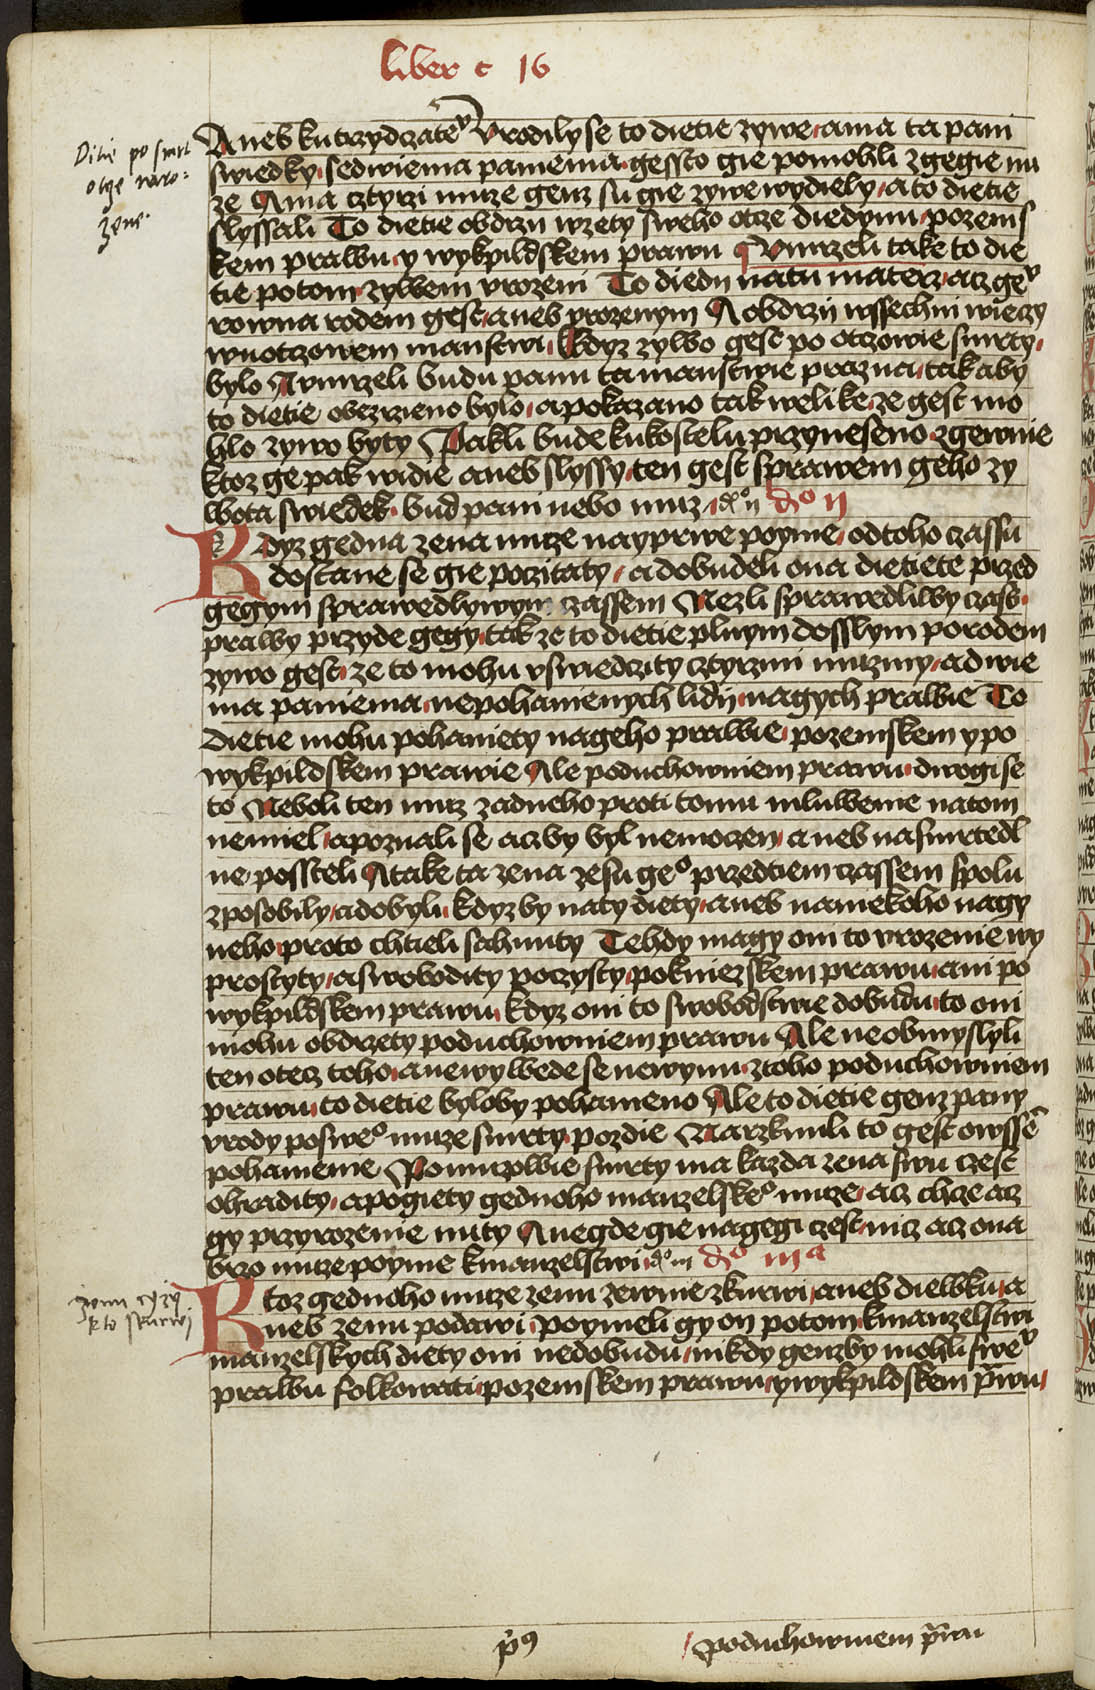 liber c 16
Ditie po smrt
otge naro:
zene.
Aneb ku trzydczatev Vrodilyse to dietie zywe ama ta pani
swiedky sedwiema paniema gessto gie pomohli zgegie nu
ze Ama cztyrzi muze genz su gie zywe wydiely a to dietie
slyssali To dietie obdrzn wzety sweho otcze diedynu pozems
kem prawu y wykpildskem prawu Vmrzeli take to die
tie potom zywem vrozeni To diedn natu materz acz gev
rowna rodem gest aneb vrozenym A obdrzn wssechni wieczy
wnotczowem manstwi kdyz zywo gest po otczowie smrty
bylo A vmrzeli budu panu ta manstwie prazna tak aby
to dietie obezrzieno bylo a pokazano tak welike ze gest mo
hlo zywo byty Pakli bude kukostelu przyneseno zgewnie
ktoz ge pak widie aneb slyssy ten gest sprawem geho zy
wota swiedek bud pani nebo muz do ij do II
Kdyz gedna zena muze nayprwe poyme od toho czassu
dostane se gie poczitaty a dobudeli ona dietiete przed
gegym sprawedlywym czassem Nezli sprawedliwy czas
prawy przyde gegy tak ze to dietie plnym dosslym porodem
zywo gest ze to mohu vswiedczity cztyrzmi muzmy a dwie
ma paniema nepohanienych lidij nagych prawie To
dietie mohu pohaniety nageho prawie pozemskem y po
wykpildskem prawie Ale poduchowniem prawu dwogi se
to Neboli ten muz zadneho proti tomu mluwenie natom
nemiel a poznali se aczby byl nemoczen a neb nasmrtedl
ne possteli A take ta zena zesu geo przedtiem czassem spolu
zposobily a dobyli kdyzby naty diety aneb naniekoho nagy
neho proto chtieli sahnuty Tehdy magy oni to vrozenie wy
prostyty a swobodity poczysty pokniezskem prawu ani po
wykpildskem prawu kdyz oni to swobodstwie dobudu to oni
mohu obdrzety poduchowniem prawu Ale neobmyslyli
ten otecz toho a newywede se newynu ztoho poduchowniem
prawu to dietie byloby pohaneno Ale to dietie genz pany
vrody posweo muze smrty pozdie Narzknuli to gest owsse
pohanienie Po muzowie smrty ma kazda zena swu czest
ohradity a pogiety gednoho manzelskeo muze acz chcze acz
gy przyrozenie nuty A negde gie nagegi czest nicz acz ona
brzo muze poyme kmanzelstwi do iij do IIIa
zenu czyzy
kto skurwi
Ktoz gednoho muze zenu zewnie zkurwi aneb diewku a
neb zenu podawi poymeli gy on potom kmanzelstwi
manzelskych diety oni nedobudu nikdy genzby mohli swev
prawu folkowati pozemskem prawu y wykpildskem prwu
poduchowniem prwu